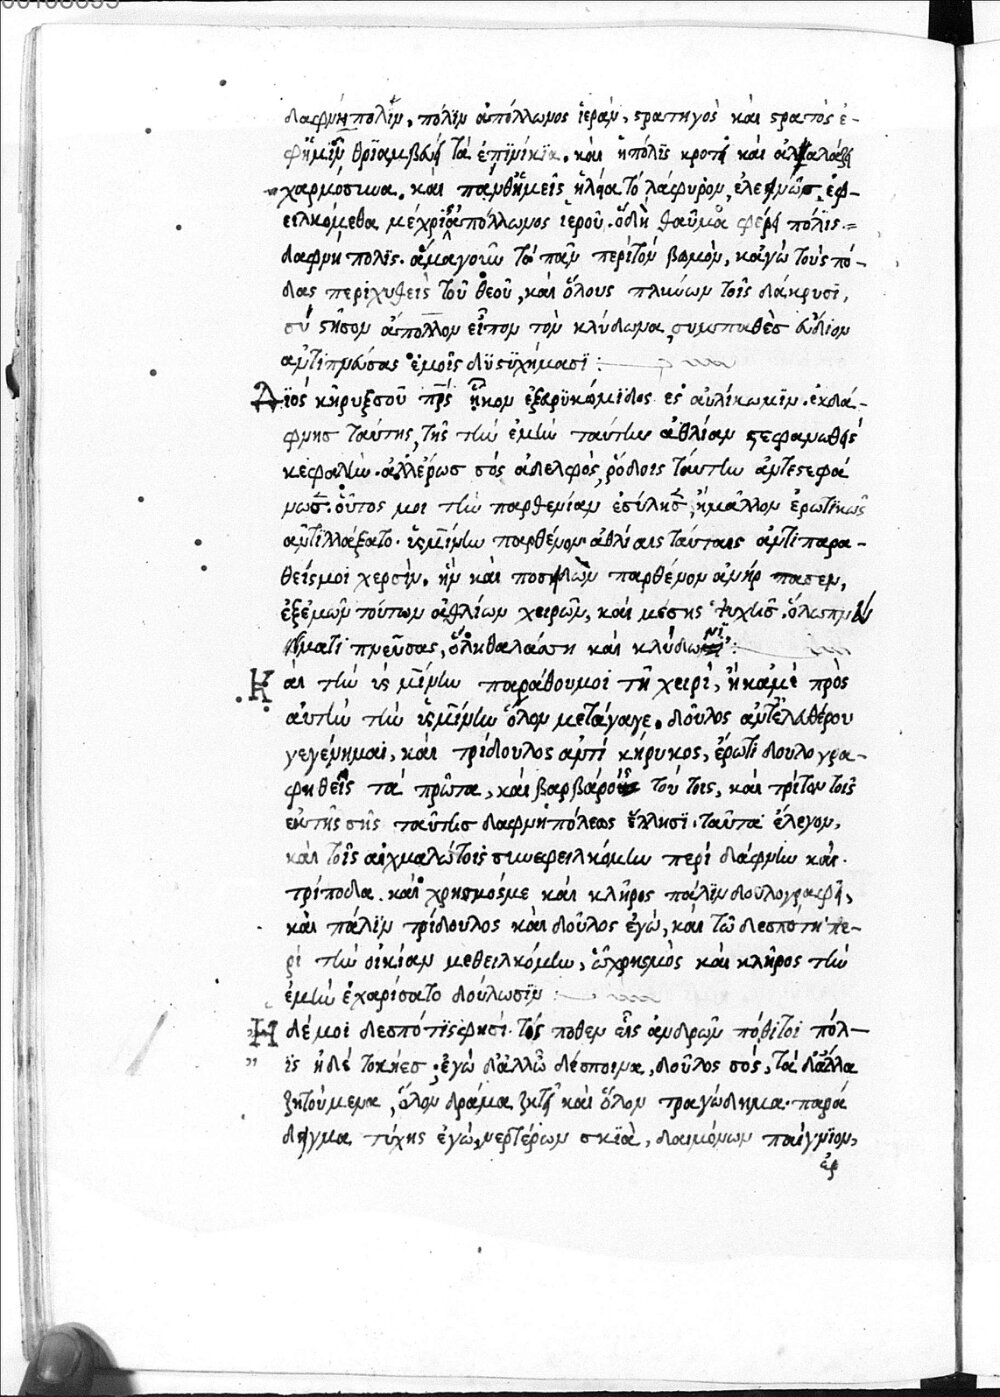 δαφνήπολιν, πόλιν ἀπόλλωνος ἱεράν, στρατηγὸς καὶ στρατὸς ἐ-
φ' ἡμῖν θριαμβεύει τὰ ἐπινίκια. καὶ ἡ πόλις κροτεῖ καὶ ἀλαλάζει
χαρμόσυνα. καὶ πάνθ' ἡμεῖς ἡ λεία τὸ λάφυρον, ἐλεεινῶς ἐφ-
ειλκόμεθα μέχρις ἀπόλλωνος ἱεροῦ. ὃ δὴ θαῦμα φέρει πόλις
δαφνήπολις. ἅμα γοῦν τὸ πᾶν περὶ τὸν βωμὸν, κἀγὼ τοὺς πό-
δας περιχυθεὶς τοῦ θεοῦ, καὶ ὅλους πλύνων τοῖς δάκρυσι,
σὺ στῆσον ἄπολλον εἶπον τὸν κλύδωνα, συμπαθὲς
ἀντιπνεύσας ἐμοῖς δυστυχήμασι :
Διός κῆρυξ σοῦ πρὸς ἧκον ἐξ εὐρυκώμιδος ἐς αὐλίκωμιν. ἐκ δά-
φνης ταύτης, τῆς τὴν ἐμὴν ταύτην ἀθλίαν στεφανωθεὶς
κεφαλήν. ἀλλ' ἔρως σὸς ἀδελφός, ῥόδοις ταύτην ἀντεστεφά
νωσεν. οὗτος μοι τὴν παρθενίαν ἐσύλησεν, ἢ μᾶλλον ἐρωτικῶς
ἀντιλλάξατο. ὑσμίνην παρθένον ἀθλίαις ταύταις ἀντιπαρα-
θείς μοι χερσίν. ἣν καὶ ποσειδῶν παρθένον ἀνήρπασεν,
ἐξ ἐμῶν τούτων ἀθλίων χειρῶν, καὶ μέσης ψυχῆς. ὅλῳ πν
ματι πνεύσας, ὅλῃ θαλάσσῃ καὶ κλύδωνι :
Καὶ τὴν ὑσμίνην παράθου μοι τῇ χειρὶ, ἢ κἀμὲ πρὸς
αὐτὴν τὴν ὑσμίνην ὅλον μετάγαγε. δοῦλος ἀντ' ἐλευθέρου
γεγένημαι, καὶ τρίδουλος ἀντὶ κήρυκος, ἔρωτι δουλογρα-
φηθεὶς τὰ πρῶτα, καὶ βαρβάροις τούτοις, καὶ τρίτον τοῖς
ἐκ τῆς σῆς ταύτης δαφνηπόλεως ἕλλησι. ταῦτα ἔλεγον,
καὶ τοῖς αἰχμαλώτοις συνεφειλκόμην περὶ δάφνην καὶ
τρίποδα. καὶ χρησμός με καὶ κλῆρος πάλιν δουλογραφεῖ,
καὶ πάλιν τρίδουλος καὶ δοῦλος ἐγώ, καὶ τῷ δεσπότῃ πε-
ρὶ τὴν οἰκίαν μεθειλκόμην, ᾧ χρησμὸς καὶ κλῆρος τὴν
ἐμὴν ἐχαρίσατο δούλωσιν :
Ἡ δέ μοι δεσπότις φησί. τὸς πόθεν εἶς ἀνδρῶν πόθι τοι πόλ-
ις ἠδὲ τοκῆες ; ἐγὼ δ' ἀλλ' ὦ δέσποινα, δοῦλος σός, τὰ δ' ἄλλα
ζητούμενα, ὅλον δρᾶμα ζητεῖ καὶ ὅλον τραγῴδημα. παρά
δειγμα τύχης ἐγώ, νερτέρων σκιὰ, δαιμόνων παίγνιον,
ἐρ